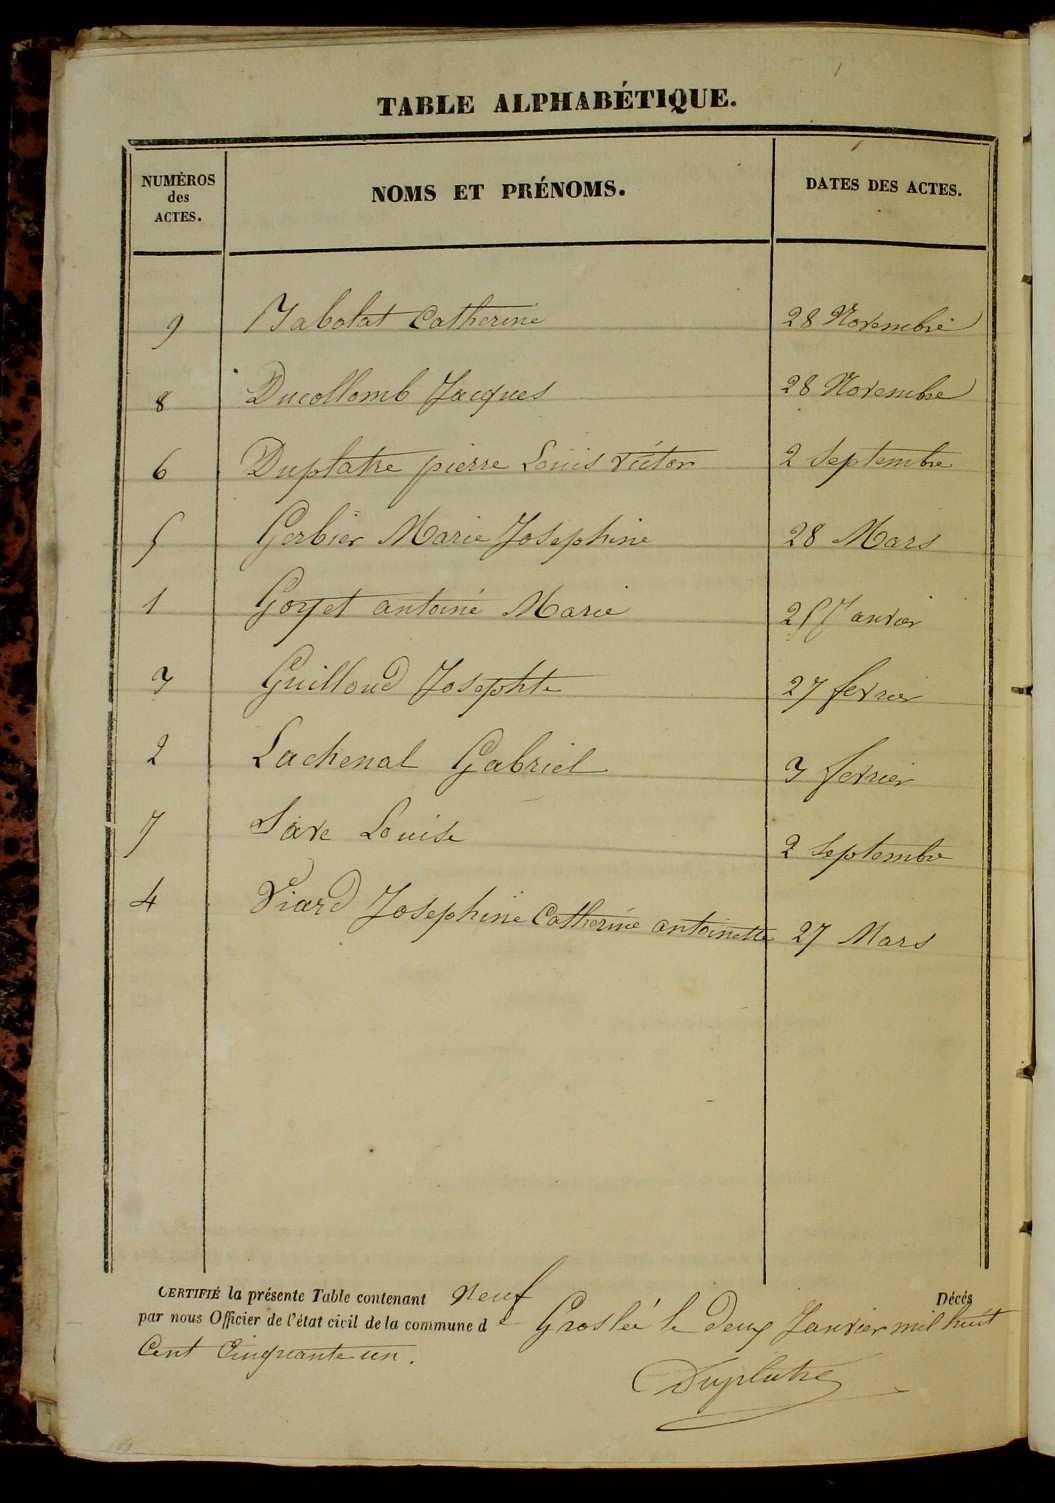 TABLE ALPHABÉTIQUE.
NUMÉROS des ACTES. NOMS ET PRÉNOMS. DATES DES ACTES.
9 Catherine 28 Novembre
8 Ducollomb Jacques 28 Novembre
6 Duplatre pierre Louis victor 2 Septembre
5 Gerbier Marie Josephine 28 Mars
1 Goyet antoine Marie 25 Janvier
3 Guilloud Josephte 27 fevrier
2 Lachenal Gabriel 3 fevrier
7 Louise 2 Septembre
4 Viard Josephine Catherine antoinette 27 Mars
CERTIFIÉ la présente Table contenant neuf Décès
par nous Officier de l'état civil de la commune de Groslée le deux Janvier mil huit
Cent Cinquante un.
Duplatre